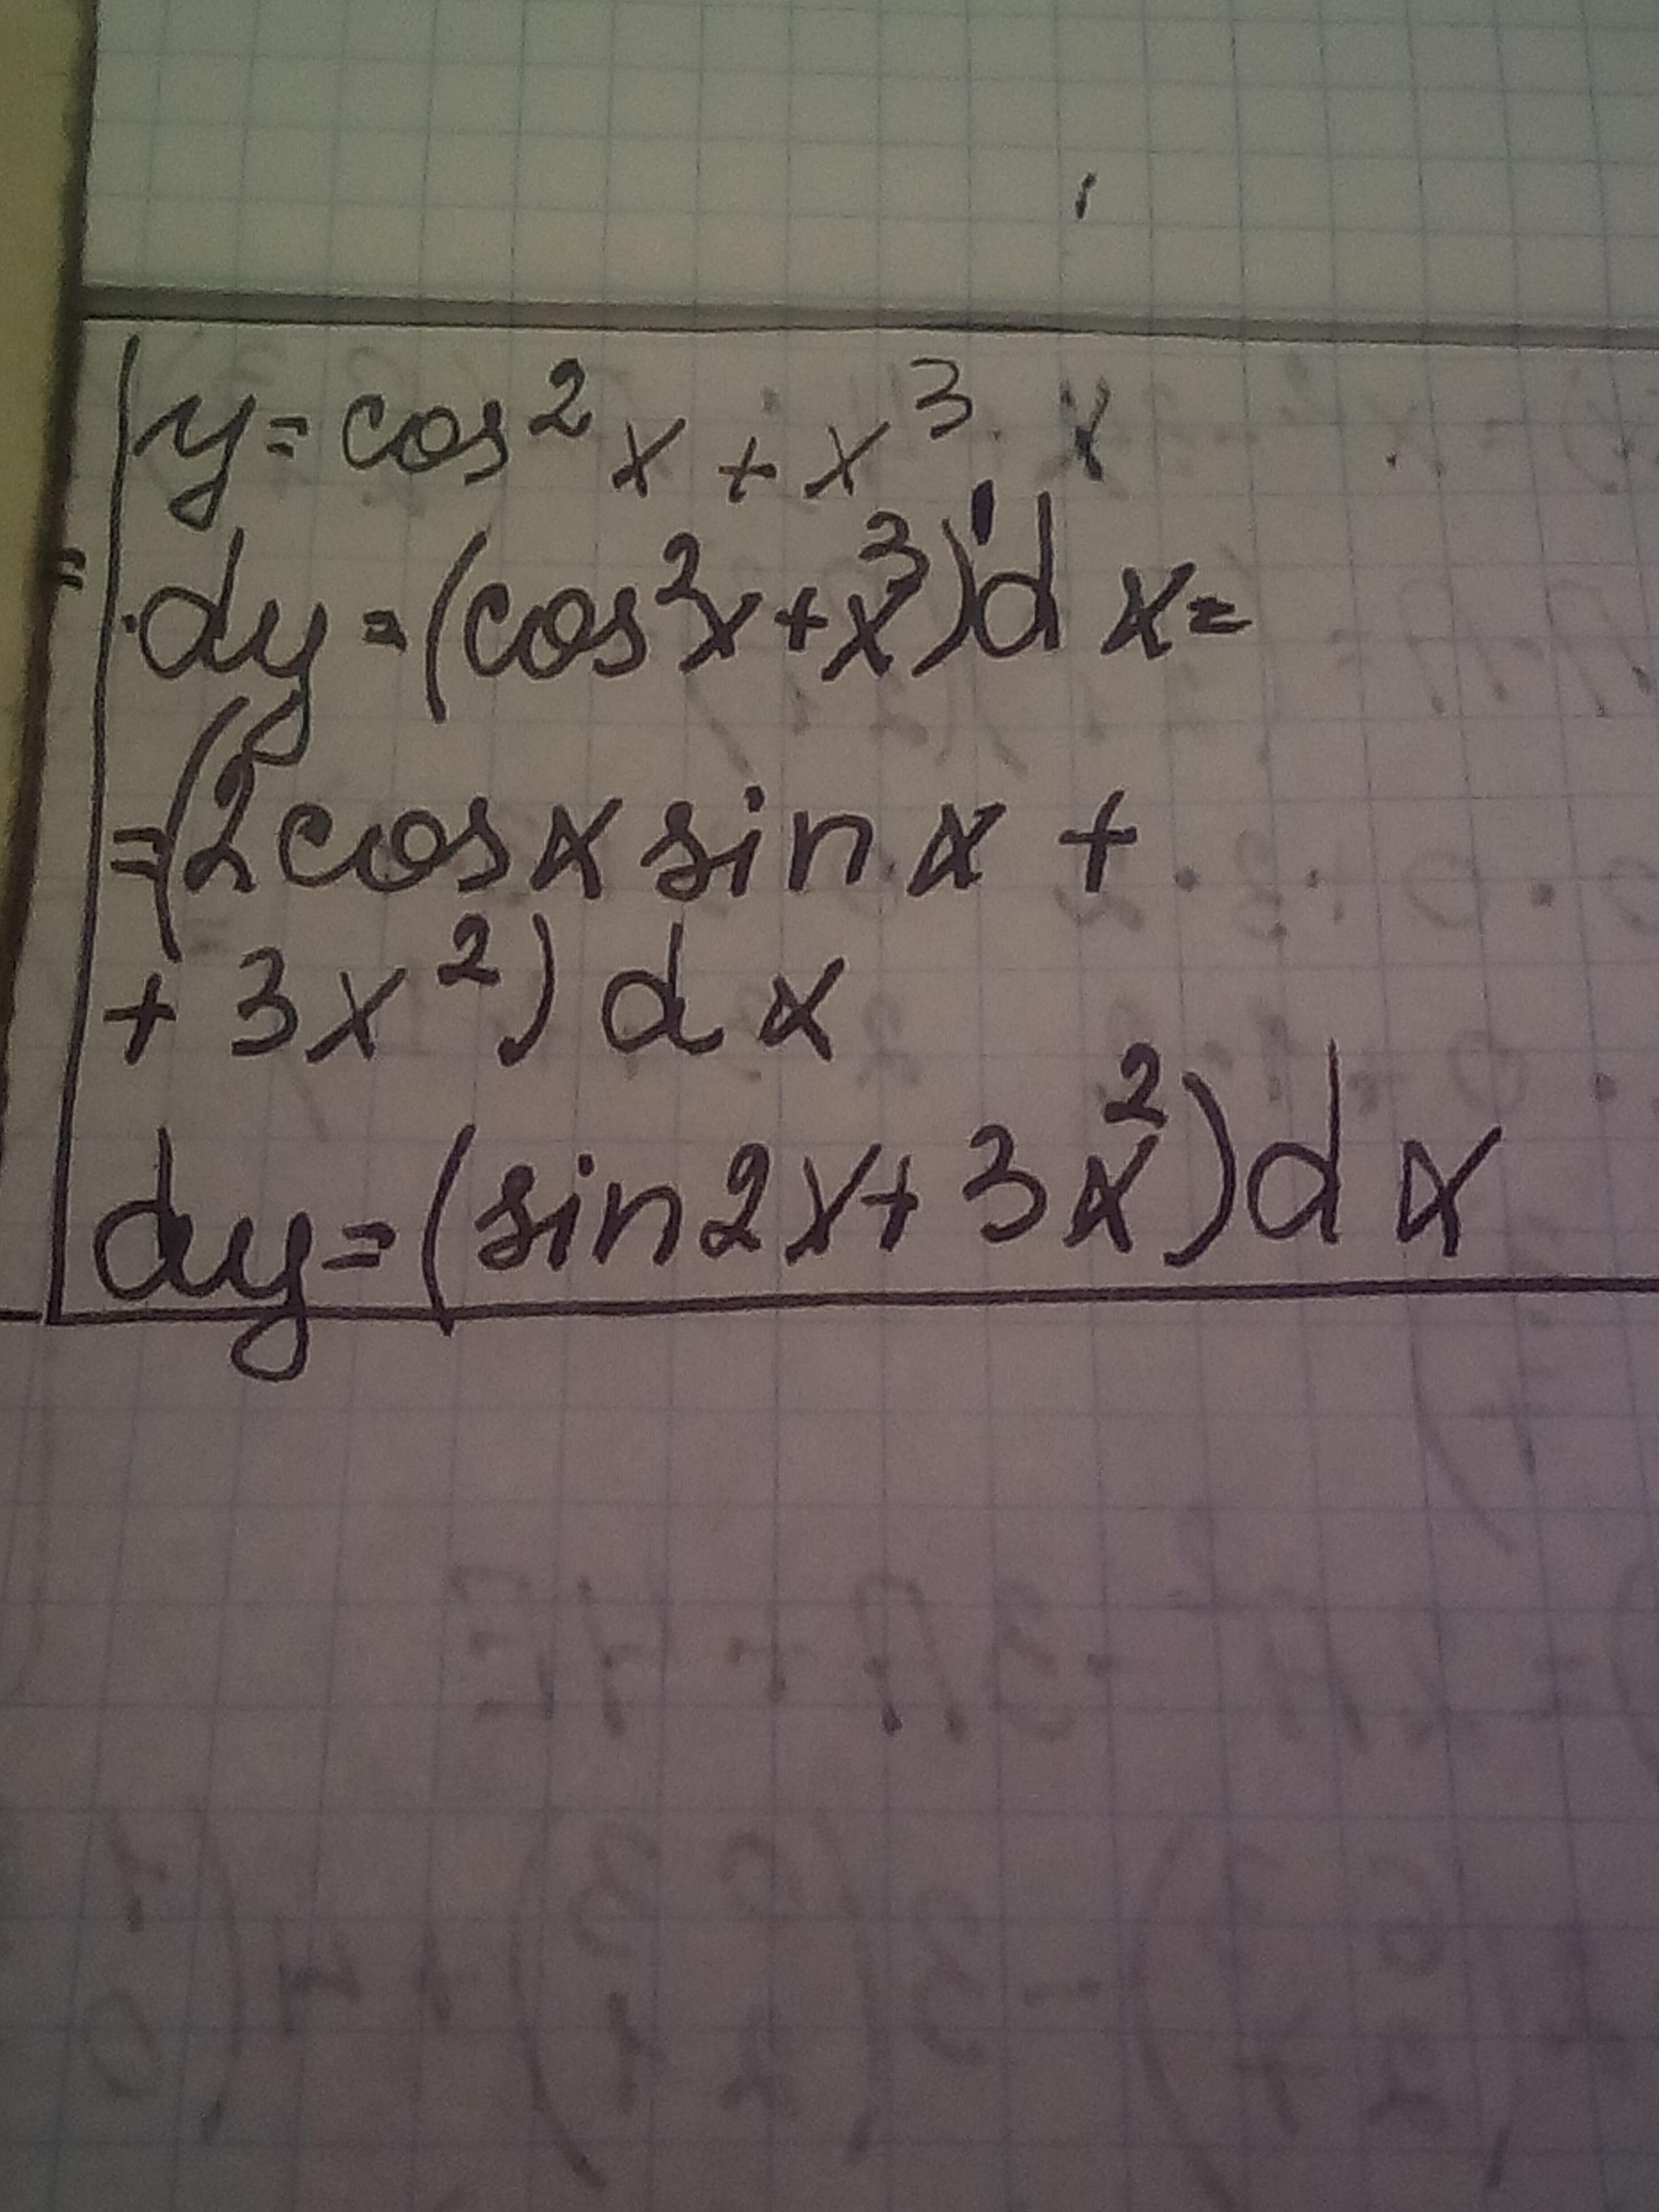 y = cos²x + x³ x
dy = (cos²x + x³)' dx =
= (2cosx sinx +
+ 3x²) dx
dy = (sin2x + 3x²) dx